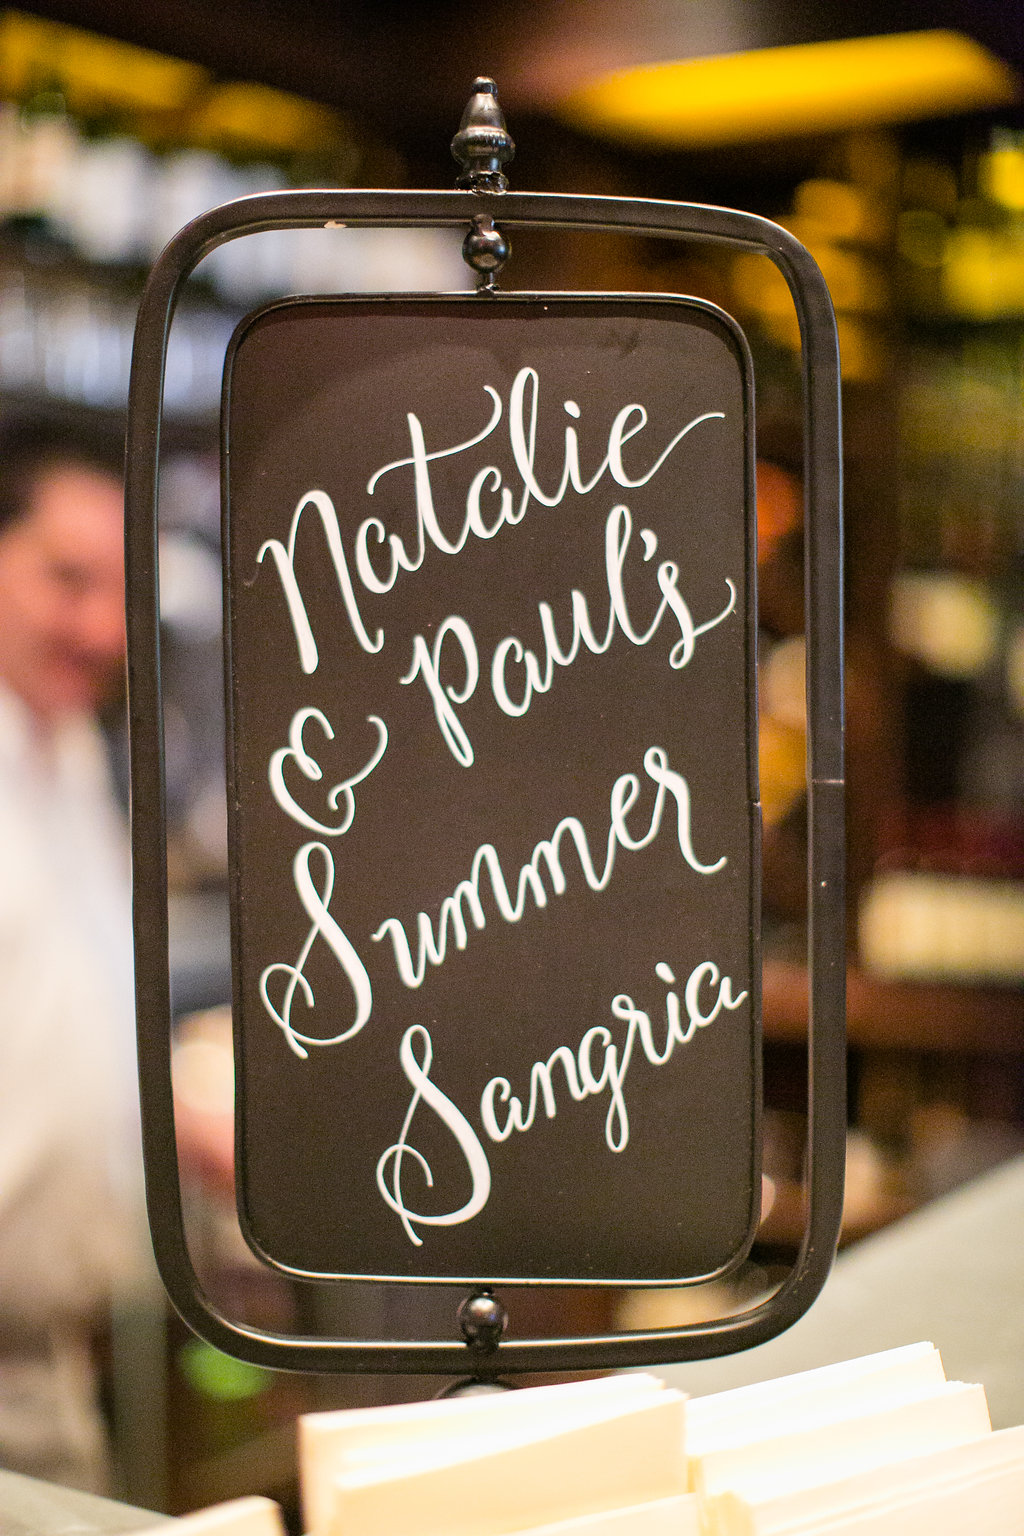 Natalie
& Paul's
Summer
Sangria